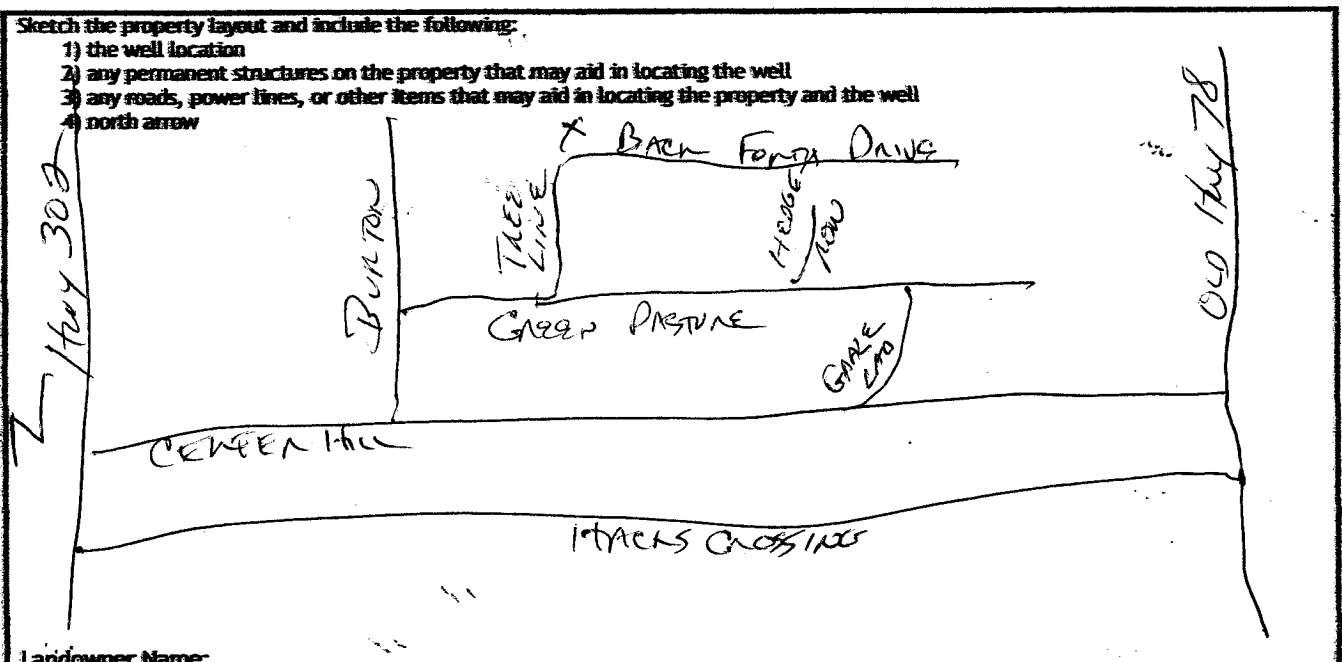 Sketch the property layout and include the following:
1) the well location
2) any permanent structures on the property that may aid in locating the well
3) any roads, power lines, or other items that may aid in locating the property and the well
4) north arrow
X BACK FORTY DRIVE
HWY 302
BURTON
TREE
LINE
HEDGE
ROW
OLD Hwy 78
GREEN PASTURE
CENTER HILL
HACKS CROSSING
Landowner Name: